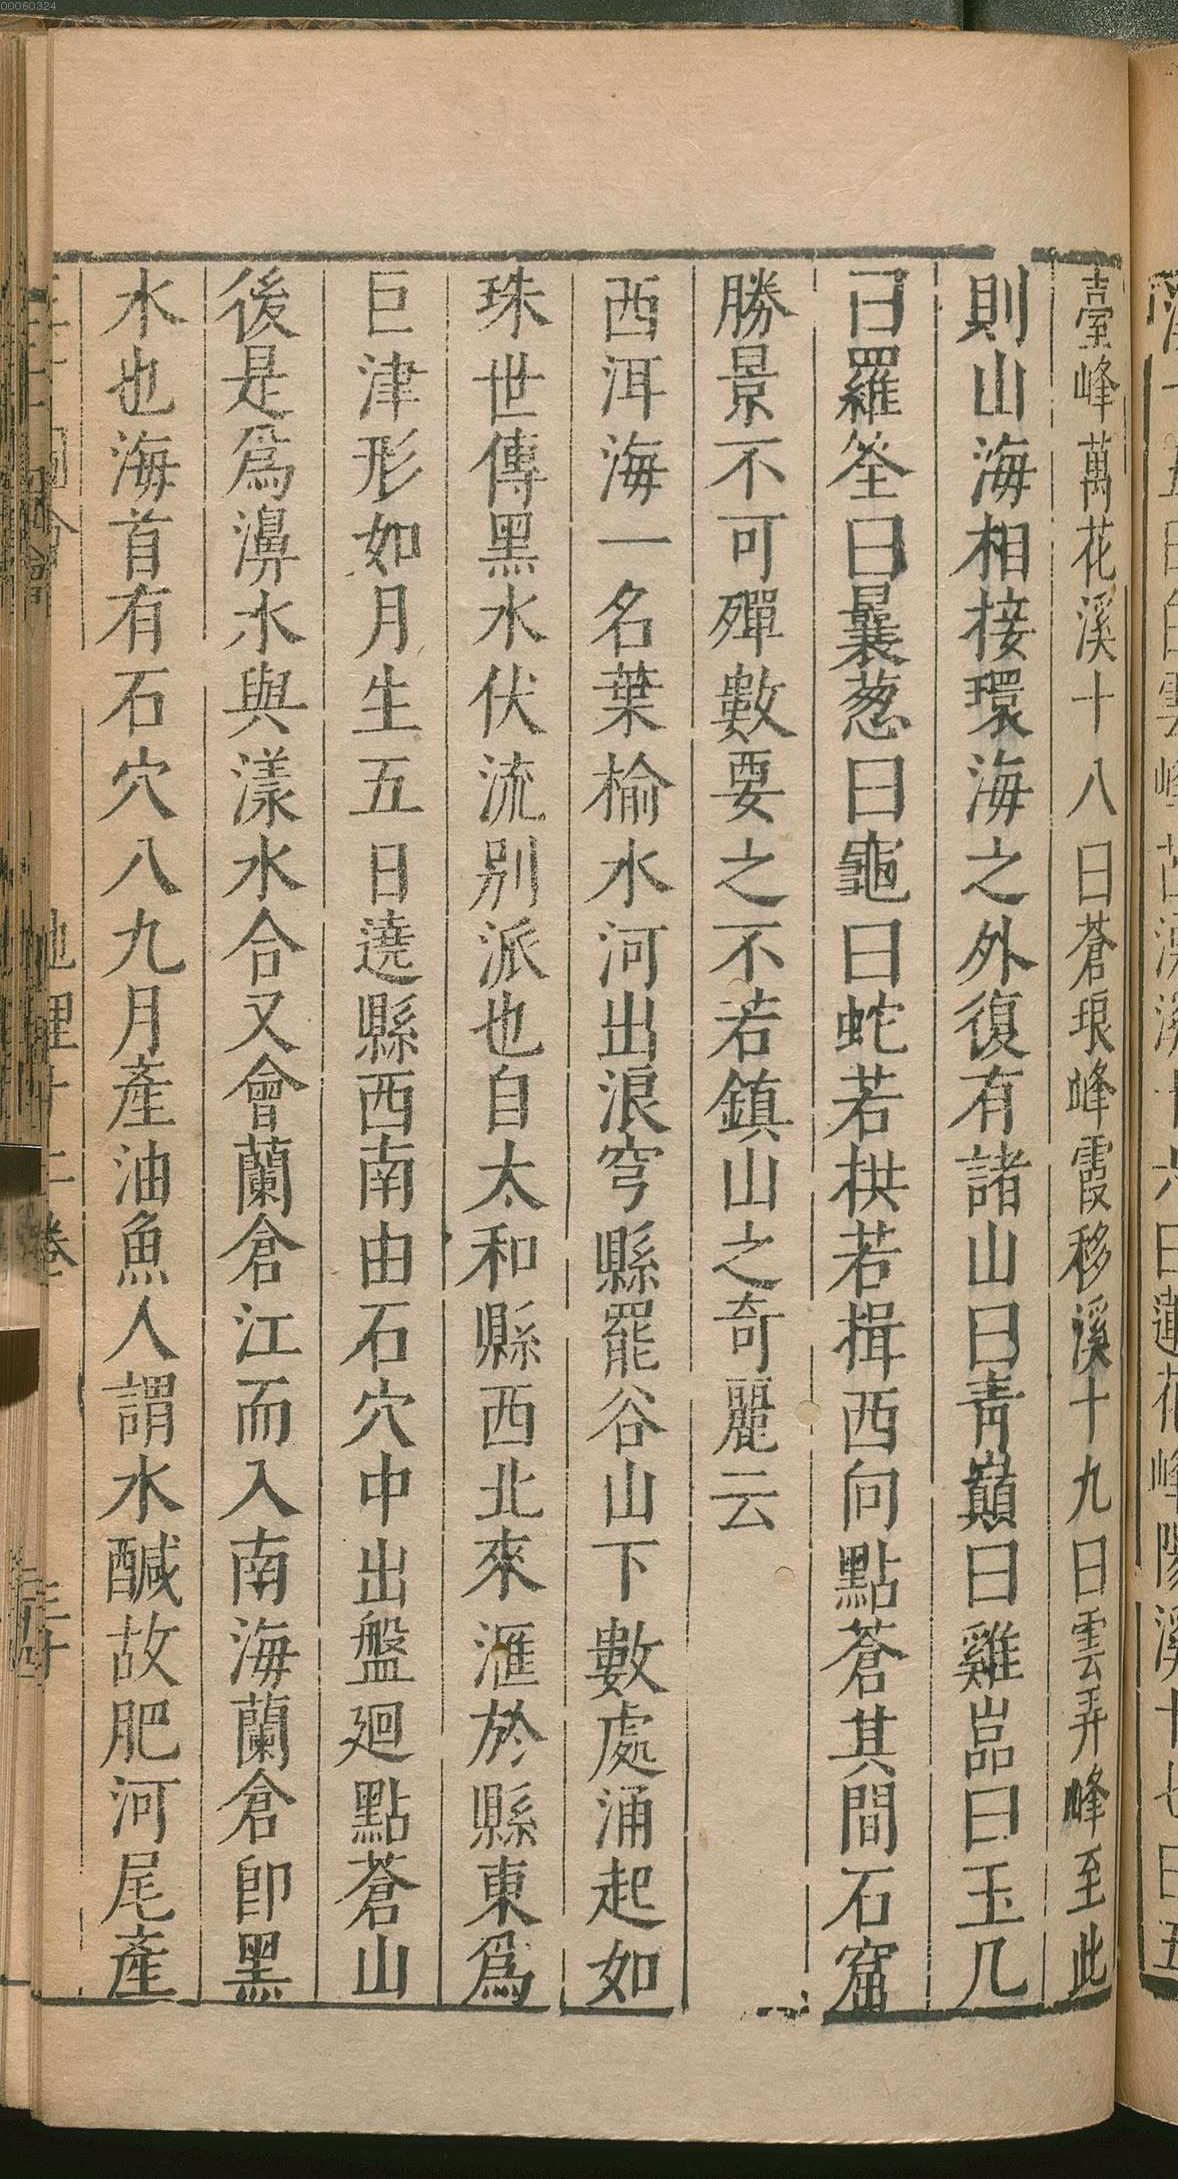 00060324
臺峰萬花溪十八曰蒼琅峰霞移溪十九曰雲弄峰至此
則山海相接環海之外復有諸山曰青巔曰雞嵓曰玉几
曰羅筌曰曩葱曰龜曰蛇若栱若揖西向點蒼其間石窟
勝景不可殫數要之不若鎮山之奇麗云
西洱海一名葉榆水河出浪穹縣罷谷山下數處涌起如
珠世傳黑水伏流别派也自太和縣西北來滙於縣東為
巨津形如月生五日遶縣西南由石穴中出盤廻點蒼山
後是爲濞水與漾水合又會蘭倉江而入南海蘭倉卽黑
水也海首有石穴八九月產油魚人謂水醎故肥河尾產
地理十二卷